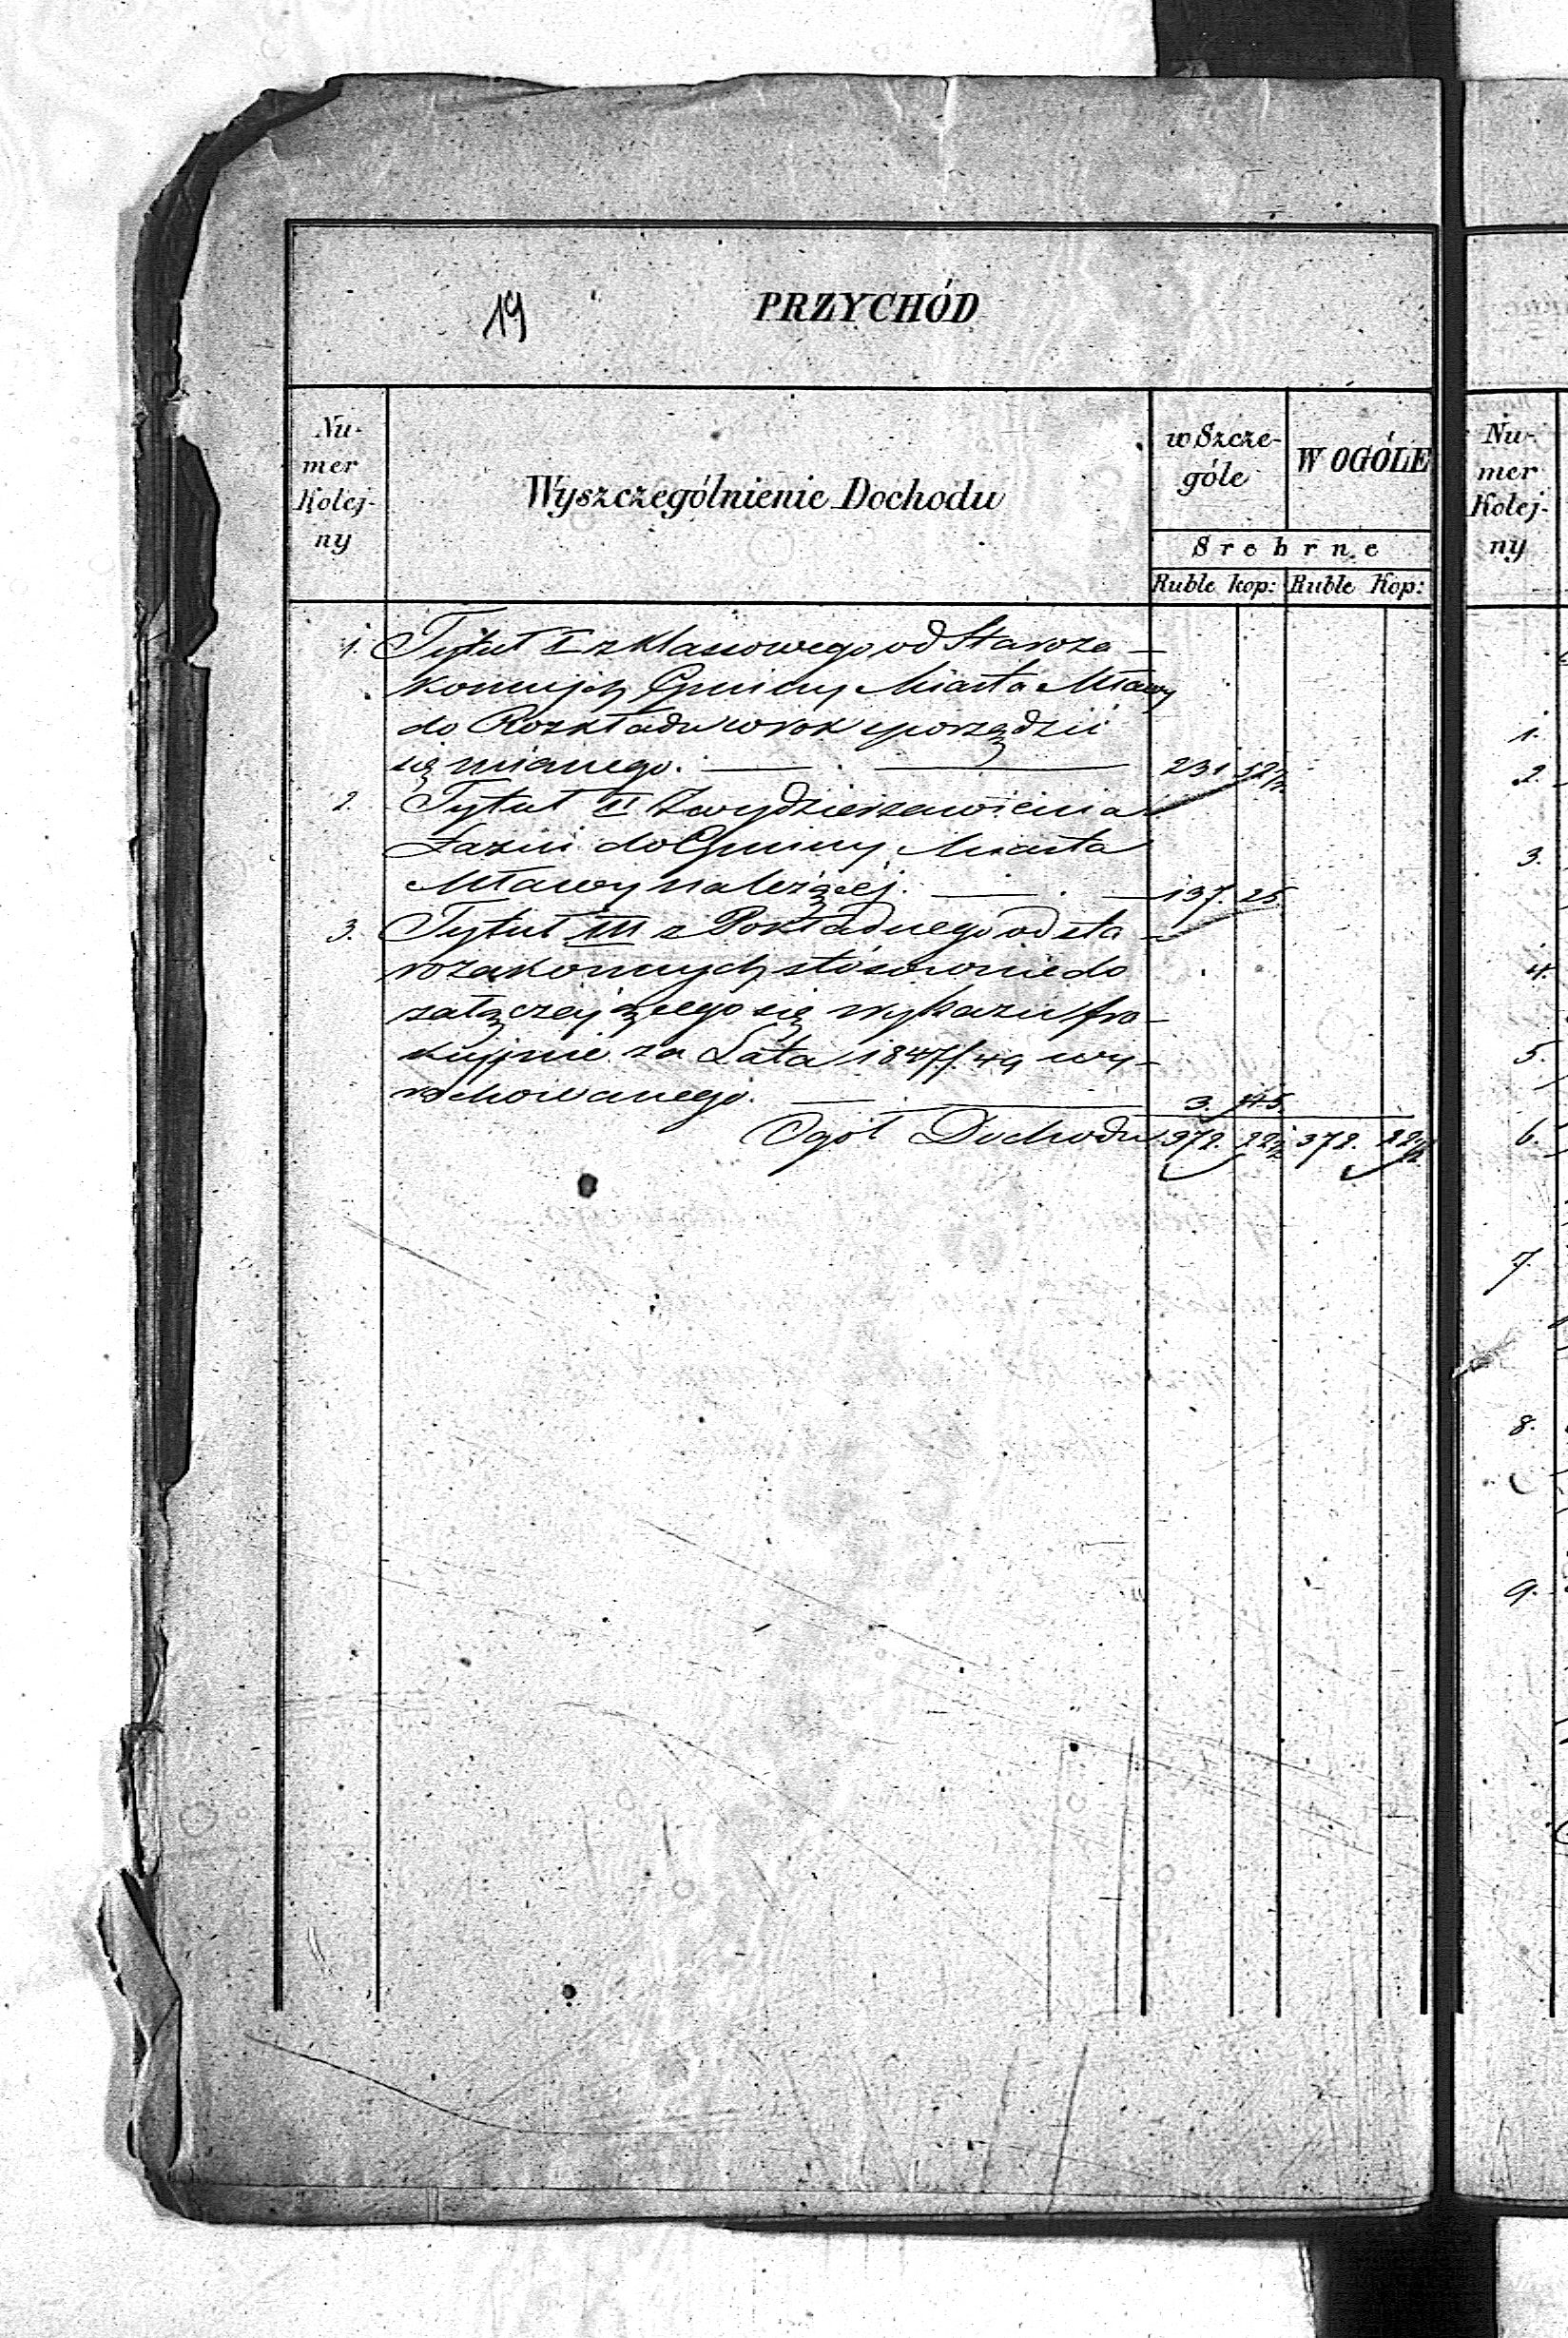 19 PRZYCHÓD
Nu-
mer
Kolej-
ny
Wyszczególnienie Dochodu
w Szcze-
góle
W OGÓLE
Srebrne
Ruble kop: Ruble Kop:
1. Tytuł I z klassowego od Staroza-
konnych Gminy Miasta Mławy
do Rozkładu w rok sporządzić
się mianego. 231 52½
2. Tytuł II Z wydzierzawienia
Łaźni do Gminy Miasta
Mławy należącej. 137. 25
3. Tytuł III z Pokładnego od sta-
rozakonnych stósownie do
załączającego się wykazu fra-
kcyjnie za Lata 1847/49 wy-
rachowanego. 3. 45.
Ogół Dochodu 372. 22½ 372. 22½
Nu-
mer
Kolej-
ny
1.
2.
3.
4.
5.
6.
7.
8.
9.